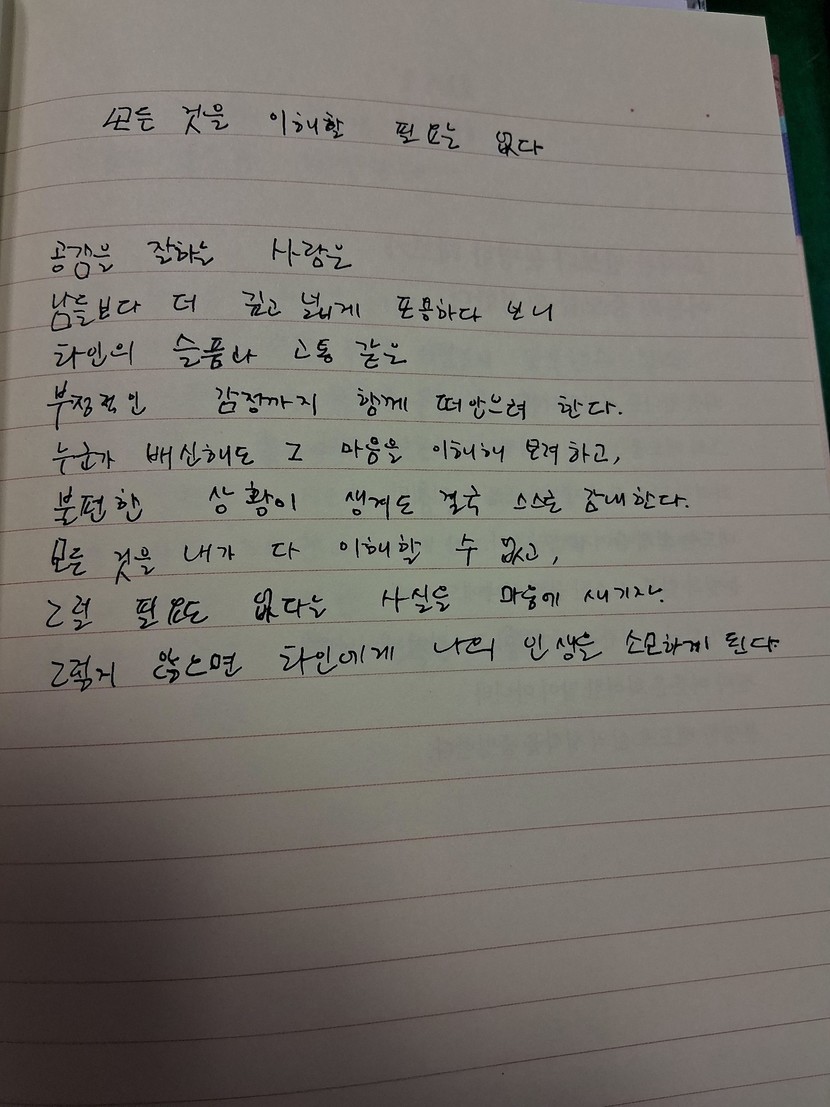 모든 것을 이해할 필요는 없다
공감을 잘하는 사람은
남들보다 더 깊고 넓게 포용하다 보니
타인의 슬픔과 고통 같은
부정적인 감정까지 함께 떠안으려 한다.
누군가 배신해도 그 마음을 이해해 보려 하고,
불편한 상황이 생겨도 결국 스스로 감내한다.
모든 것을 내가 다 이해할 수 없고,
그럴 필요도 없다는 사실을 마음에 새기자.
그렇게 않으면 타인에게 나의 인생을 소모하게 된다.